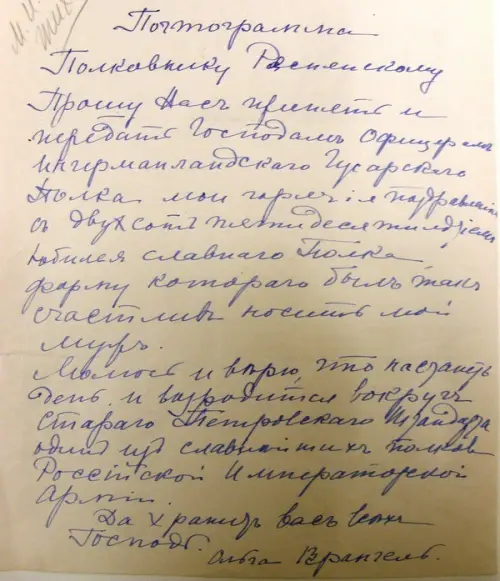 Почтограмма
Полковнику Распенскому
Прошу Васъ принять и
передать Господамъ Офицерамъ
Ингерманландскаго Гусарскаго
Полка мои горячія поздравленія
съ двухсотъ пятидесятилѣтіемъ
юбилея славнаго Полка
форму котораго былъ такъ
счастливъ носить мой
мужъ.
Молюсь и вѣрю, что настанетъ
день и возродится вокругъ
стараго Петровскаго Штандарта
одинъ изъ славнѣйшихъ полковъ
Россійской Императорской
Арміи.
Да хранитъ васъ всѣхъ
Господь.
Ольга Врангель.